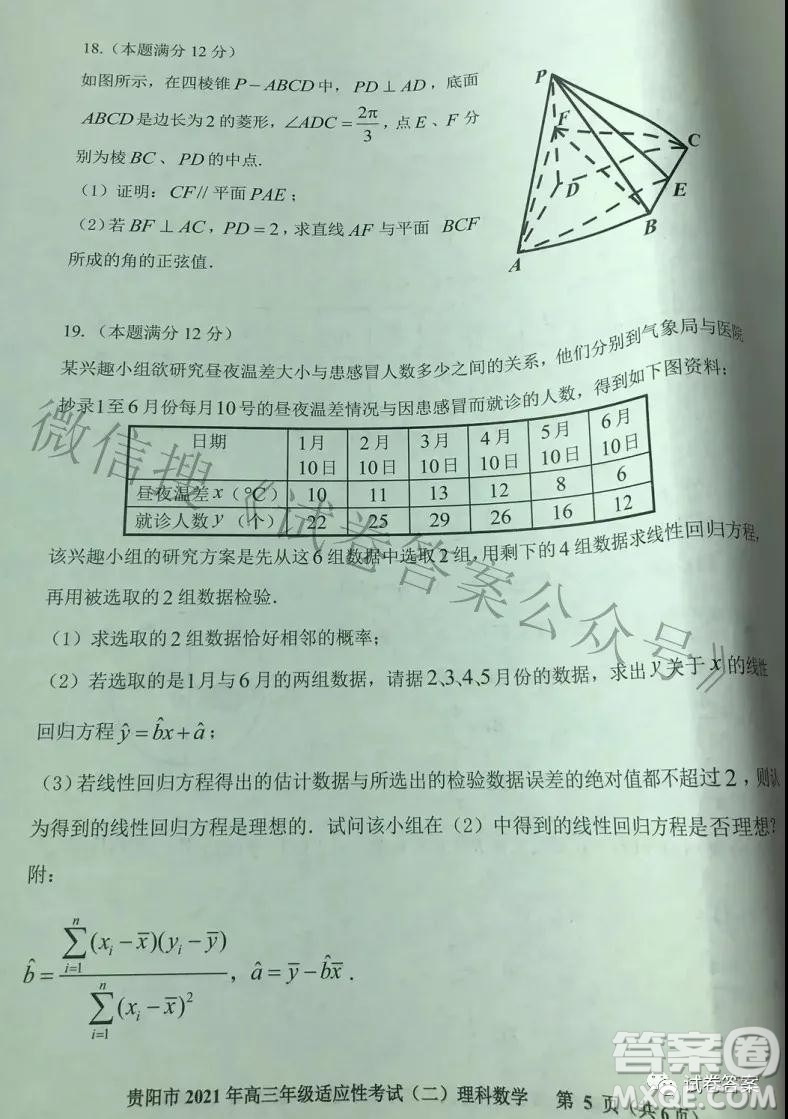 18.（本题满分 12 分）
如图所示，在四棱锥 P－ABCD 中，PD ⊥ AD，底面
ABCD 是边长为 2 的菱形，∠ADC = 2π/3，点 E 、F 分
别为棱 BC 、PD 的中点.
（1）证明：CF// 平面 PAE；
（2）若 BF ⊥ AC，PD = 2，求直线 AF 与平面 BCF
所成的角的正弦值.
P
F
C
D
E
B
A
19.（本题满分 12 分）
某兴趣小组欲研究昼夜温差大小与患感冒人数多少之间的关系，他们分别到气象局与医院
抄录1至 6 月份每月10 号的昼夜温差情况与因患感冒而就诊的人数，得到如下图资料：
日期 1月10日 2月10日 3月10日 4月10日 5月10日 6月10日
昼夜温差 x（℃） 10 11 13 12 8 6
就诊人数 y （个） 22 25 29 26 16 12
该兴趣小组的研究方案是先从这 6 组数据中选取 2 组，用剩下的 4 组数据求线性回归方程，
再用被选取的 2 组数据检验.
（1）求选取的 2 组数据恰好相邻的概率；
（2）若选取的是1月与 6 月的两组数据，请据 2、3、4、5 月份的数据，求出 y 关于 x 的线性
回归方程 ŷ = b̂x + â；
（3）若线性回归方程得出的估计数据与所选出的检验数据误差的绝对值都不超过 2，则认
为得到的线性回归方程是理想的. 试问该小组在（2）中得到的线性回归方程是否理想？
附：
b̂ = ∑_{i=1}^{n}(x_i − x̄)(y_i − ȳ) / ∑_{i=1}^{n}(x_i − x̄)²，â = ȳ − b̂x̄ .
贵阳市 2021 年高三年级适应性考试（二）理科数学 第 5 页（共 6 页）
微信搜《试卷答案公众号》
答案圈
试卷答案
MXQE.COM